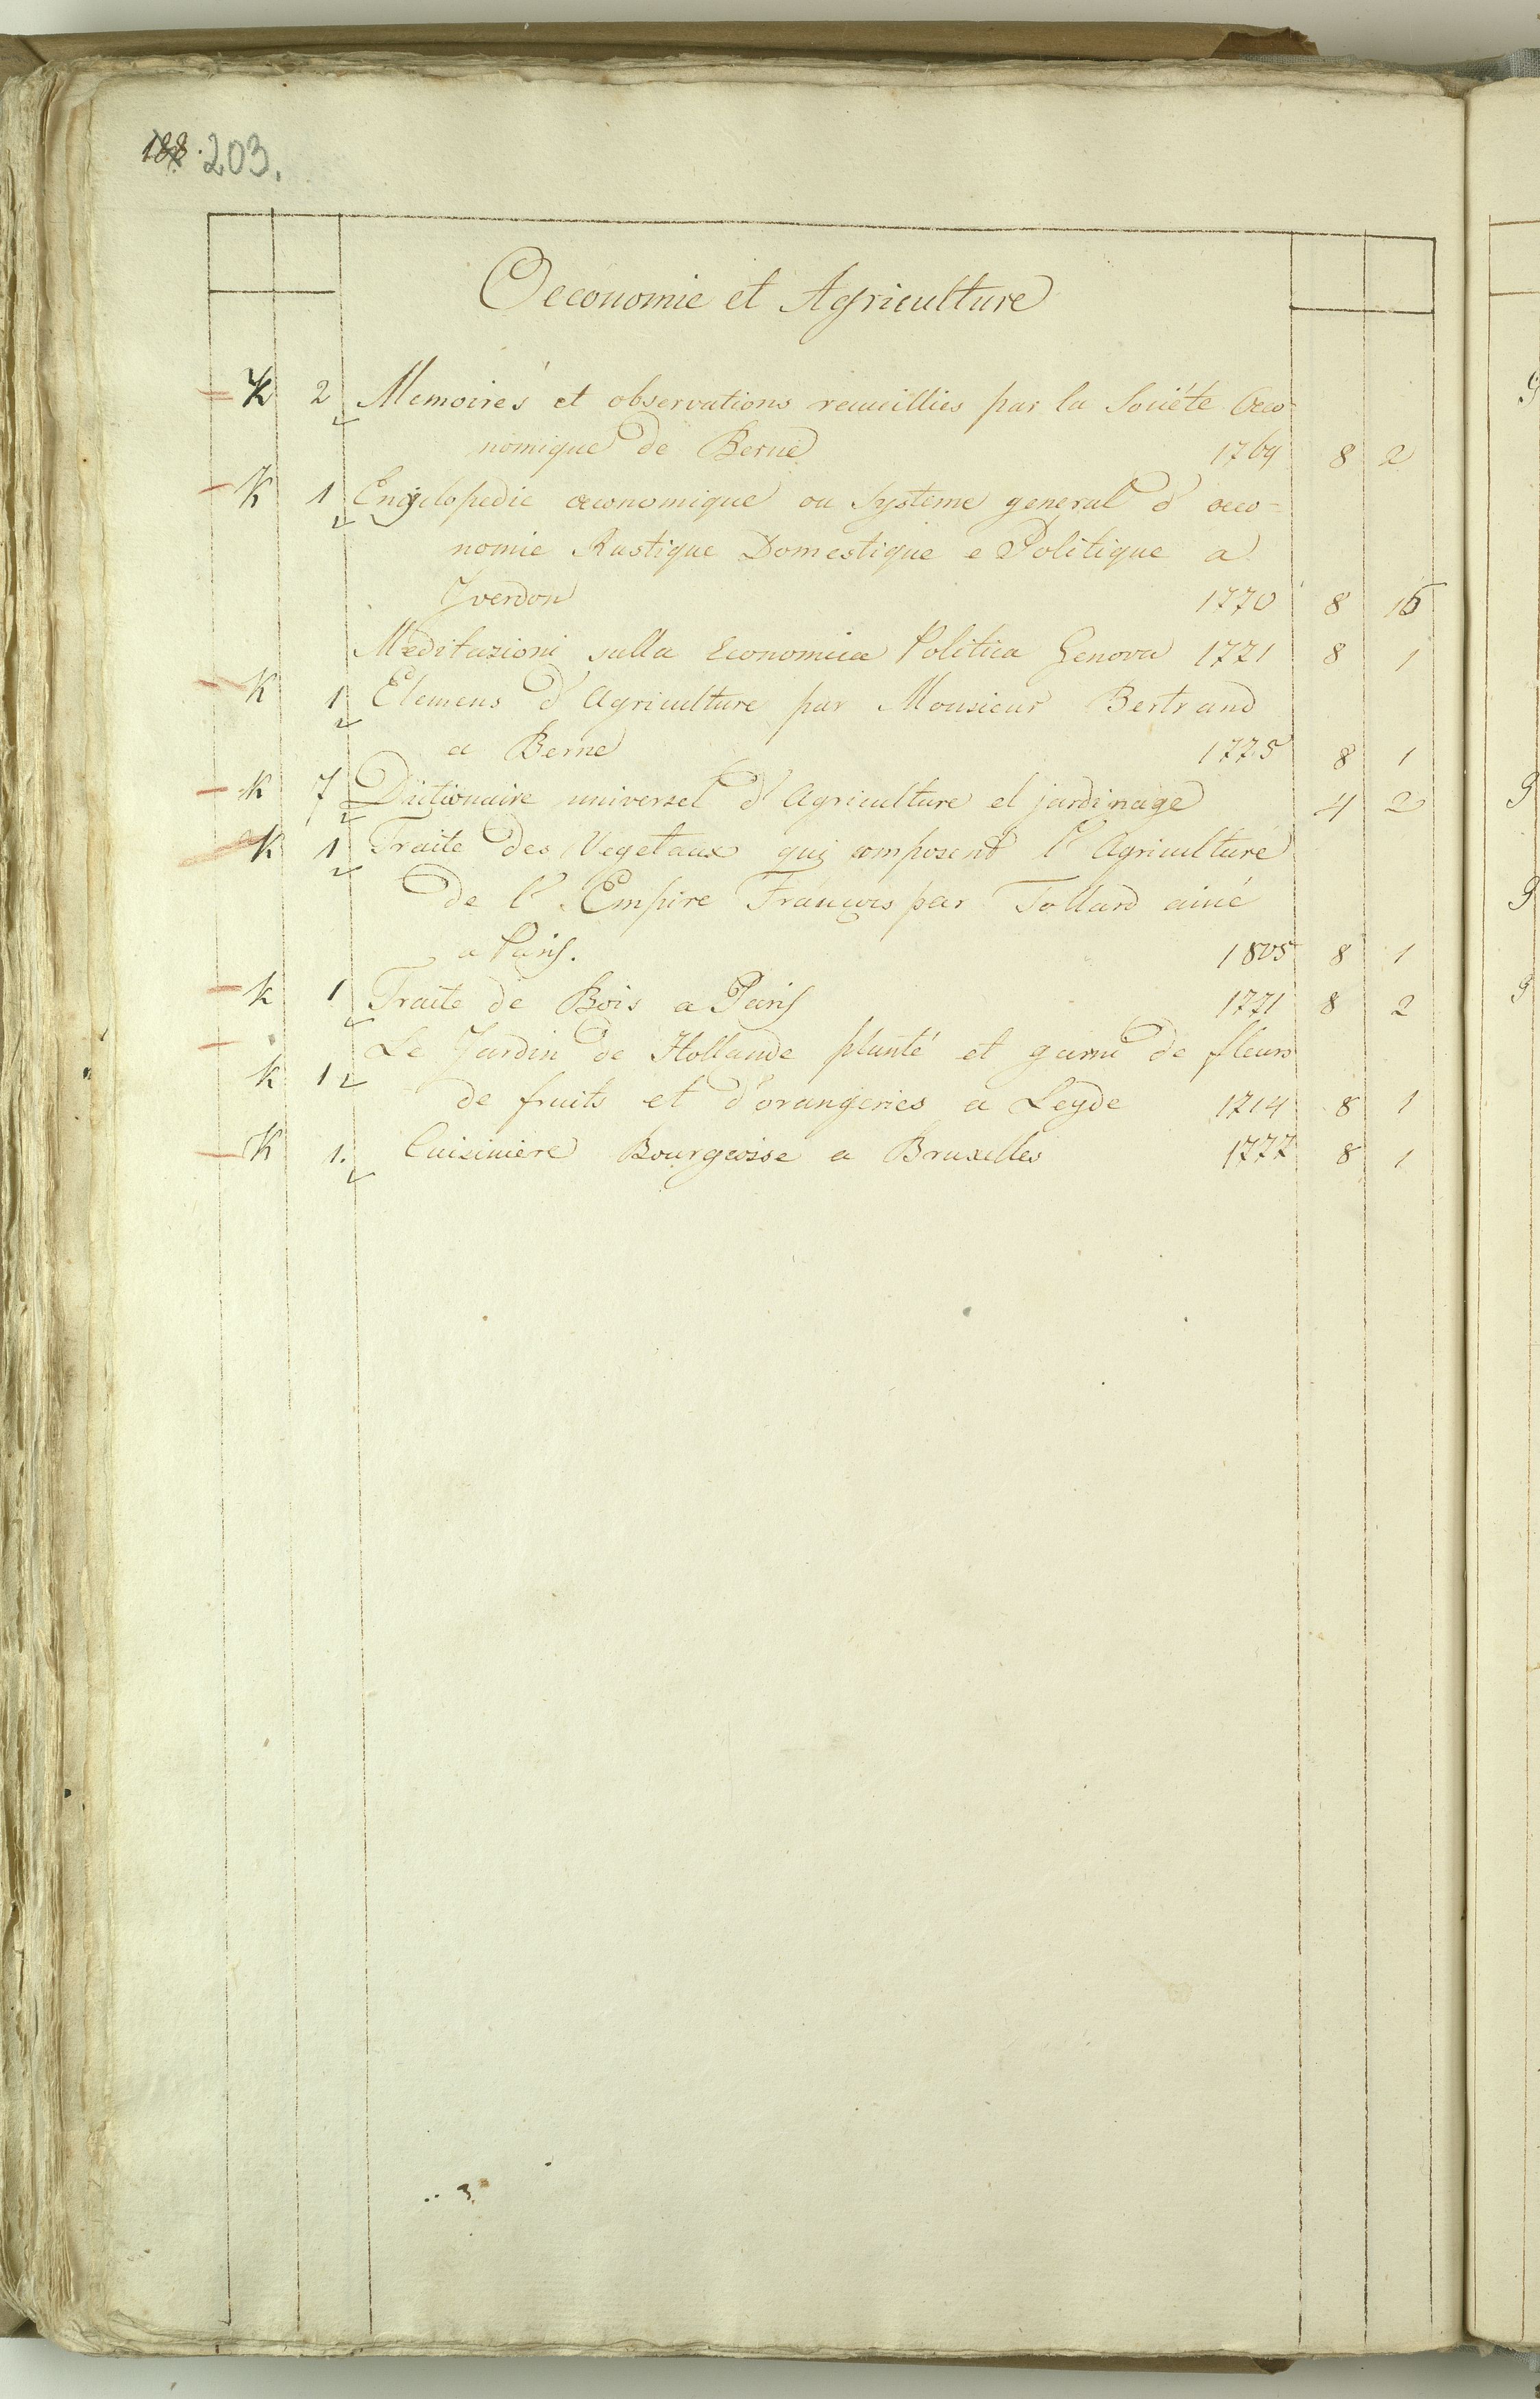 188. 203.
Oeconomie et Agriculture
K 2 Memoires et observations recueillies par la Sociéte Oeco-
nomique de Berne 1769 8 2
K 1 Encyclopedie œconomique ou Systeme general d' œco-
nomie Rustique Domestique e Politique a
Yverdon 1770 8 16
Meditazioni sulla Economica Politica Genova 1771 8 1
K 1 Elemens d'Agriculture par Monsieur Bertrand
a Berne 1775 8 1
K 7 Dictionaire universel d'Agriculture et jardinage 4 2
K 1 Traite des Vegetaux qui composent l'Agriculture
de l'Empire Français par Tollard ainé
a Paris. 1805 8 1
K 1 Traite de Bois a Paris 1771 8 2
Le Jardin de Hollande planté et garni de fleurs
K 1 de fruits et d'orangeries a Leyde 1714 8 1
K 1. Cuisiniere Bourgeoise a Bruxelles 1777 8 1